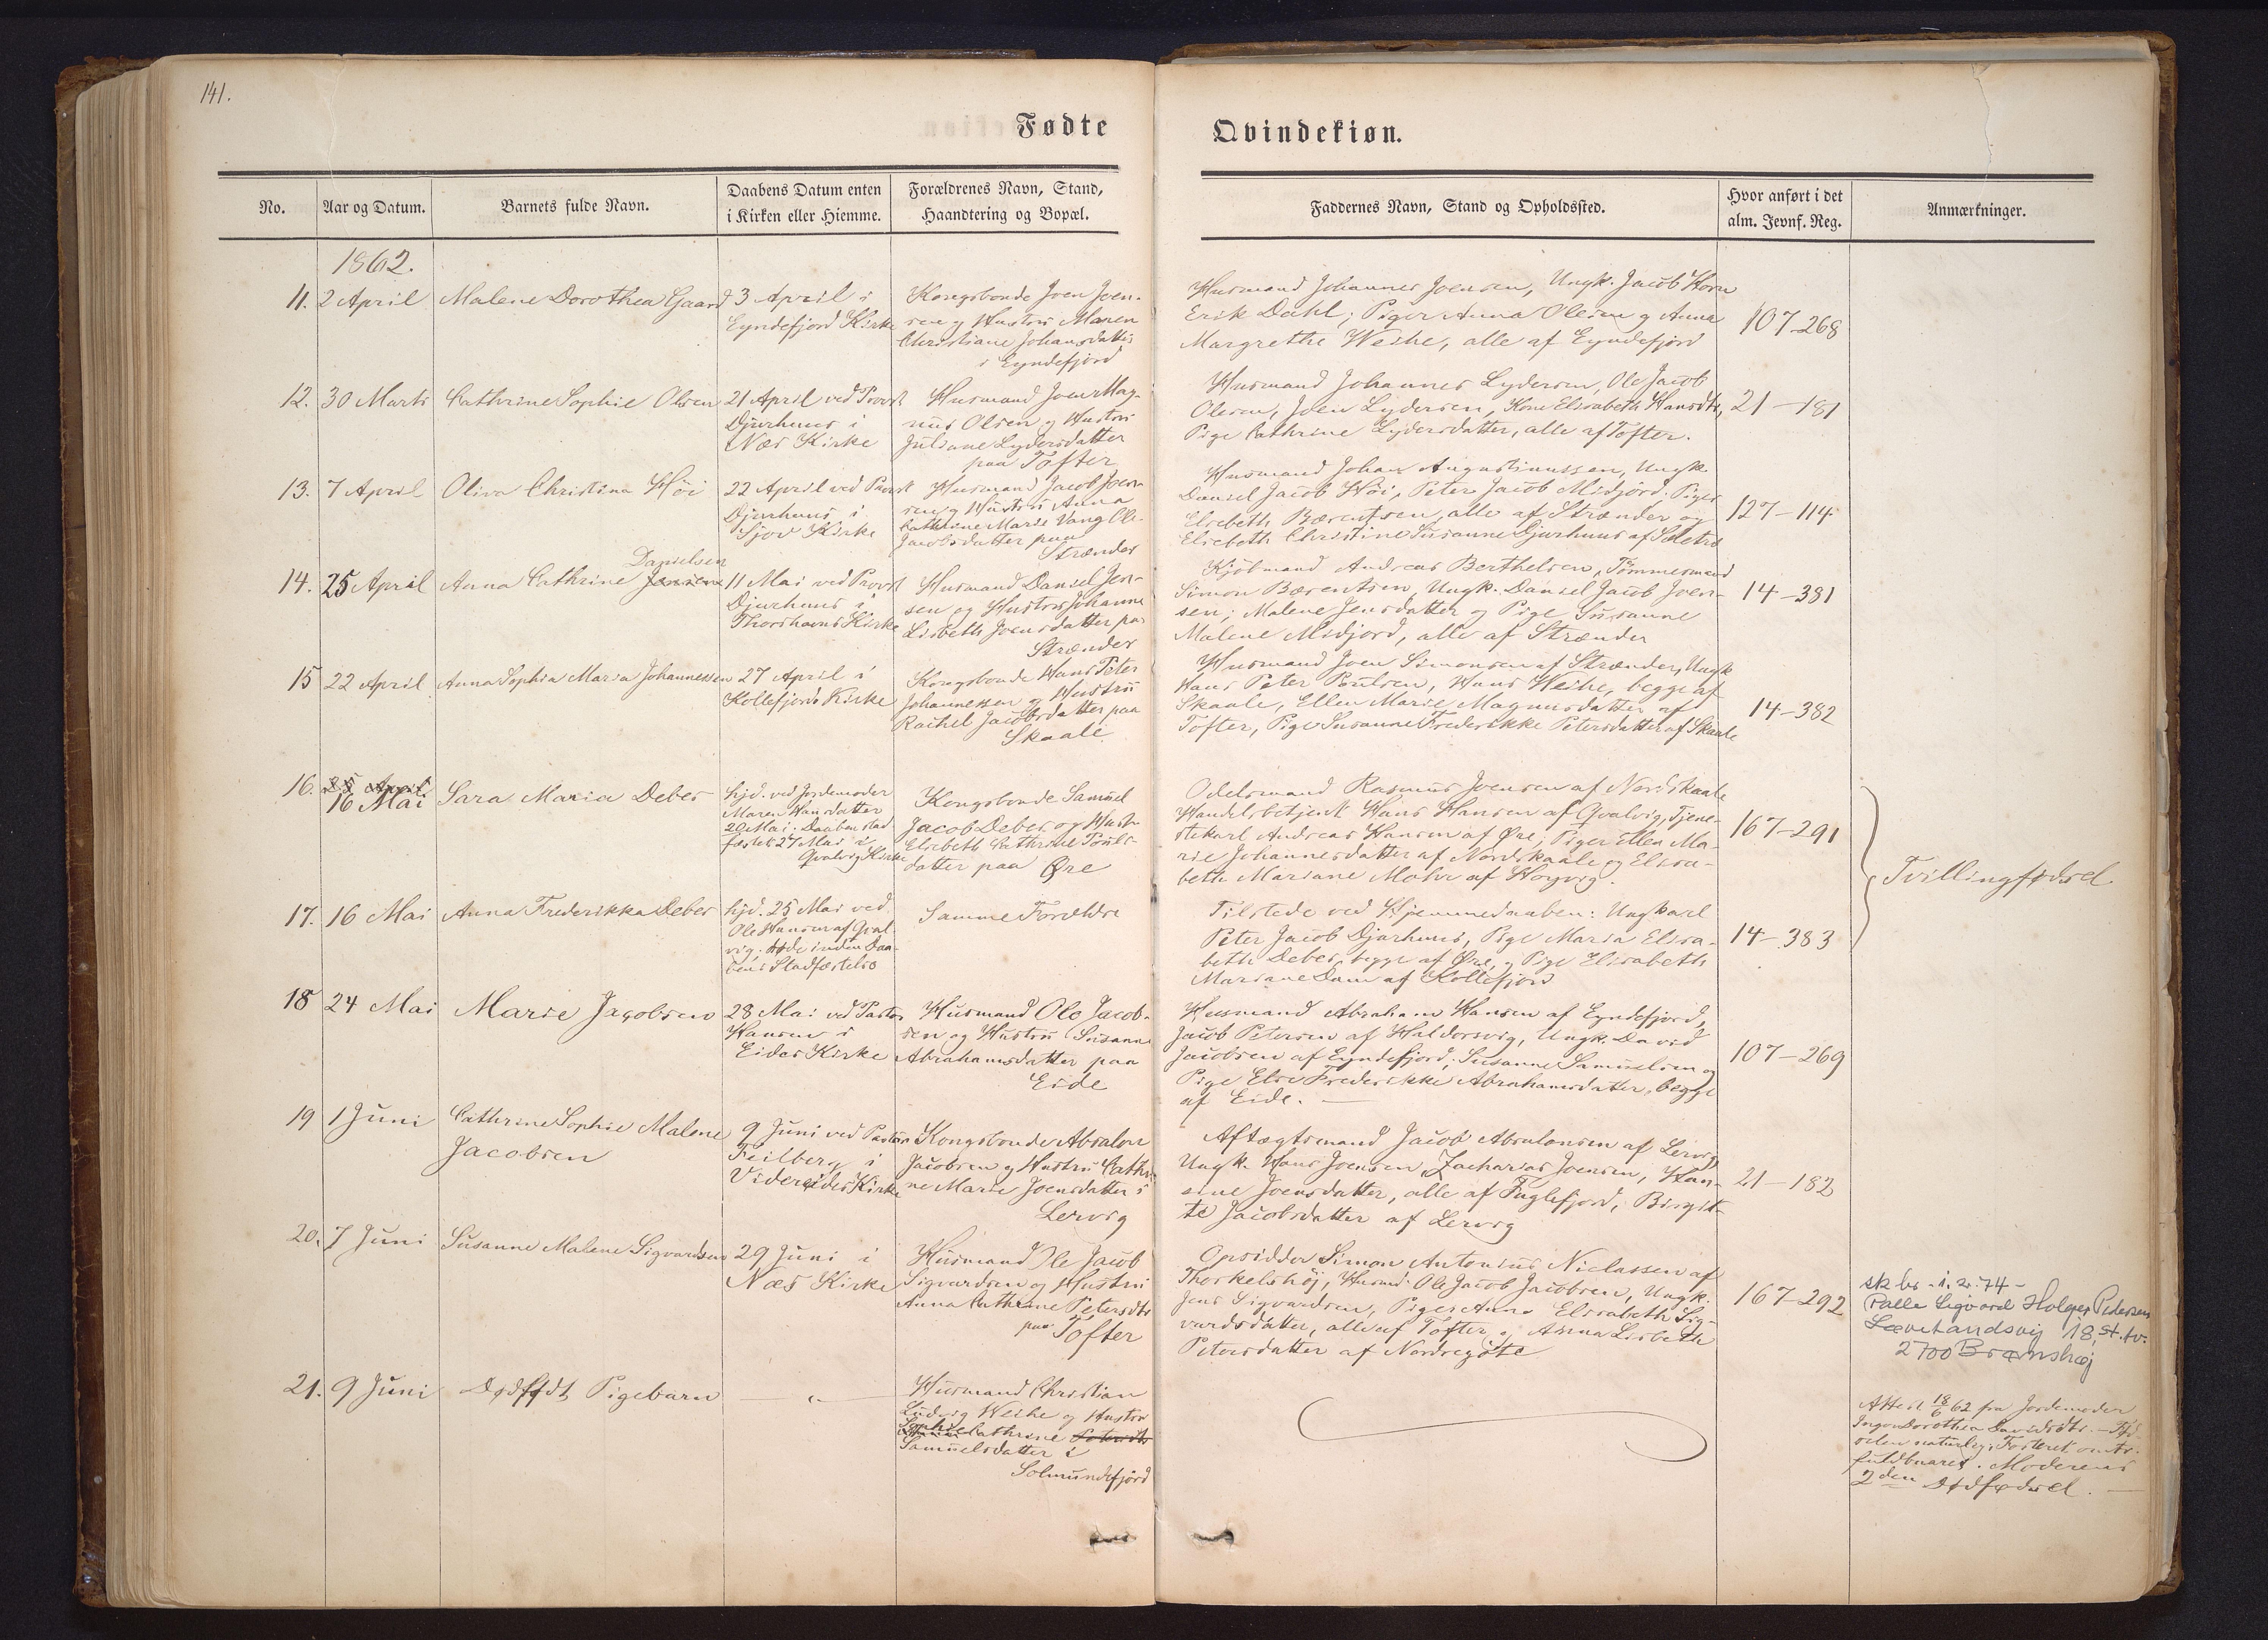 141.
Fødte
Qvindekiøn.
No.
Aar og Datum.
Barnets fulde Navn.
Daabens Datum enten
i Kirken eller Hiemme.
Forældrenes Navn, Stand,
Haandtering og Bopæl.
Faddernes Navn, Stand og Opholdssted.
Hvor anført i det
alm. Jevnf. Reg.
Anmærkninger.
1862.
11. 2 April
Malene Dorothea Gaard
3 April i
Eyndefjord Kirke
Kongsbonde Joen Joen-
sen og Hustru Maren
Christiane Johansdatter
i Eyndefjord
Husmand Johannes Joensen, Ungk. Jacob Horn
Erik Dahl; Piger Anna Olesen og Anna
Margrethe Weihe, alle af Eyndefjord
107-268
12. 30 Marts
Cathrine Sophie Olsen
21 April ved Provst
Djurhuus i
Næs Kirke
Husmand Joen Mag-
nus Olsen og Hustru
Juliane Lydersdatter
paa Tofter
Husmand Johannes Lydersen, Ole Jacob
Olesen, Joen Lydersen, Kone Elisabeth Hansdtr,
Pige Cathrine Lydersdatter, alle af Tofter.
21-181
13. 7 April
Oliva Christina Höi
22 April ved Provst
Djurhuus i
Sjov Kirke
Husmand Jacob Joen-
sen og Hustru Anna
Cathrine Marie Vang Ole-
Jacobsdatter paa
Strænder
Husmand Johan Augustinussen, Ungk.
Daniel Jacob Höi, Peter Jacob Midjord. Piger
Elsebeth Bærentsen, alle af Strænder og
Elsebeth Christine Susanne Djurhuus af Sületrø
127-114
14. 25 April
Anna Cathrine Jensen
Danielsen
11 Mai ved Provst
Djurhuus i
Thorshavns Kirke
Husmand Daniel Jen-
sen og Hustru Johanne
Lisbeth Joensdatter paa
Strænder
Kjöbmand Andreas Berthelsen, Tömmermand
Simon Bærentsen, Ungk. Daniel Jacob Joen-
sen; Malene Jensdatter og Pige Susanne
Malene Midjord, alle af Strænder
14-381
15 22 April
Anna Sophia Maria Johannessen
27 April i
Kollefjords Kirke
Kongsbonde Hans Peter
Johannessen og Hustru
Rachel Jacobsdatter paa
Skaale
Husmand Joen Simonsen af Strænder, Ungk
Hans Peter Poulsen, Hans Weihe, begge af
Skaale, Ellen Marie Magnusdatter af
Tofter, Pige Susanne Frederikke Petersdatter af Skaale
14-382
16. 25 April
16 Mai
Sara Maria Debes
hjd. ved Jordemoder
Maren Hansdatter
20 Mai. Daaben stad
fæstet 27 Mai i
Qvalvig Kirke
Kongsbonde Samuel
Jacob Debes og Hust-
Elsebeth Cathrine Pouls-
datter paa Øre
Odelsmand Rasmus Joensen af Nordskaale
Handelsbetjent Hans Hansen af Qvalvig, Tjene-
stekarl Andreas Hansen af Øre, Piger Ellen Ma-
rie Johannesdatter af Nordskaale og Elisa-
beth Mariane Mohr af Hoyvig.
167-291
Tvillingfødsel
17. 16 Mai
Anna Frederikka Debes
hjd. 25 Mai ved
Ole Hansen af Qval-
vig, døde inden Daa-
bens Stadfæstelse
Samme Forældre
Tilstede ved Hjemmedaaben: Ungkarl
Peter Jacob Djurhuus, Pige Maria Elisa-
beth Debes, begge af Øre, og Pige Elisabeth
Mariane Dam af Kollefjord
14-383
18 24 Mai
Marie Jacobsen
28 Mai ved Pastor
Hansen i
Eides Kirke
Husmand Ole Jacob-
sen og Hustru Susanne
Abrahamsdatter paa
Eide
Husmand Abraham Hansen af Eyndefjord,
Jacob Petersen af Haldorsvig, Ungk. David
Jacobsen af Eyndefjord; Susanne Samuelsen og
Pige Else Frederikke Abrahamsdatter, begge
af Eide.
107-269
19 1 Juni
Cathrine Sophie Malene
Jacobsen
9 Juni ved Pastor
Feilberg i
Videreides Kirke
Kongsbonde Absalon
Jacobsen og Hustru Cathri-
ne Marie Joensdatter i
Lervig
Aftægtsmand Jacob Absalonsen af Lervig
Ungk. Hans Joensen, Zacharias Joensen, Han-
sine Joensdatter, alle af Fuglefjord, Birgit-
te Jacobsdatter af Lervig
21-182
20. 7 Juni
Susanne Malene Sigvardsen
29 Juni i
Næs Kirke
Husmand Ole Jacob
Sigvardsen og Hustru
Anna Cathrine Petersdtr
paa Tofter
Opsidder Simon Antonius Niclassen af
Thorkelshöj, Husmd. Ole Jacob Jacobsen, Ungk.
Jens Sigvardsen, Piger Anna Elisabeth Sig-
vardsdatter, alle af Tofter og Anna Lisbeth
Petersdatter af Nordregöte
167-292
sk br - 1. 2. 74 -
Palle Sigvard Holger Pedersen
18, st. tv.
2700 Brønshøj
21. 9 Juni
Dødfødt Pigebarn
"
Husmand Christian
Ludvig Weihe og Hustru
Sophie Cathrine Petersdtr
Samuelsdatter i
Solmundefjord
Attest 18/6 62 fra Jordemoder
Dorothea Davidsdtr. - Fød-
selen naturlig, Fosteret omtr.
fuldbaaret. Moderens
2den Dødfødsel.